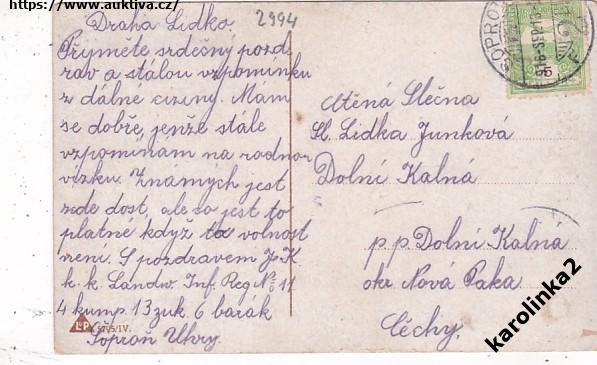 https://www.auktiva.cz/
2994
Draha Lidko
Přijměte srdečný pozd
rav a stálou vzpomínku
z dálné ciziny. Mám
se dobře, jenže stále
vzpomínám na rodnou
vízku. Známých jest
zde dost, ale so jest to
platné když ta volnost
není. S pozdravem J. K
k. k. Landw. Inf. Reg No 11
4 kump. 13 zuk. 6 barák
Šoproň Uhry.
Ctěná Slečna
Sl. Lidka Junková
Dolní Kalná
p. p. Dolní Kalná
okr Nová Paka
Čechy.
SOPRO
916-SEP
5
L&P
5795/IV.
karolinka2